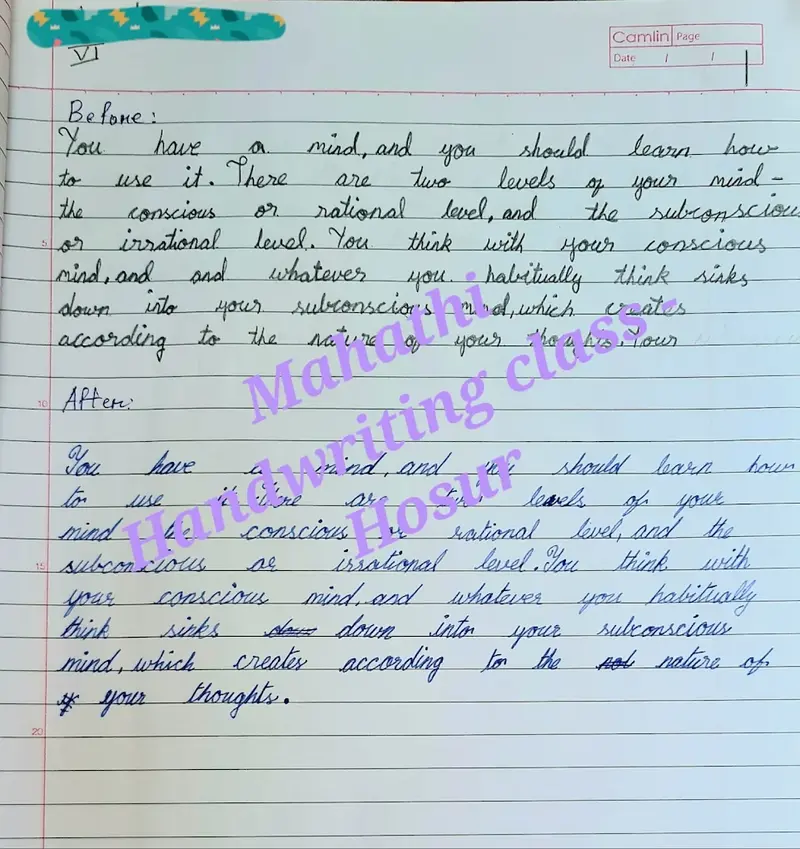 VI
Camlin Page
Date / /
Before:
You have a mind, and you should learn how
to use it. There are two levels of your mind -
the conscious or rational level, and the subconscious
or irrational level. You think with your conscious
mind, and and whatever you habitually think sinks
down into your subconscious mind, which creates
according to the nature of your thoughts. Your
After:
You have a mind, and you should learn how
to use it. there are two levels of your
mind the conscious or rational level, and the
subconscious or irrational level. You think with
your conscious mind, and whatever you habitually
think sinks down down into your subconscious
mind, which creates according to the not nature of
your thoughts.
5
10
15
20
Mahathi
Handwriting class -
Hosur